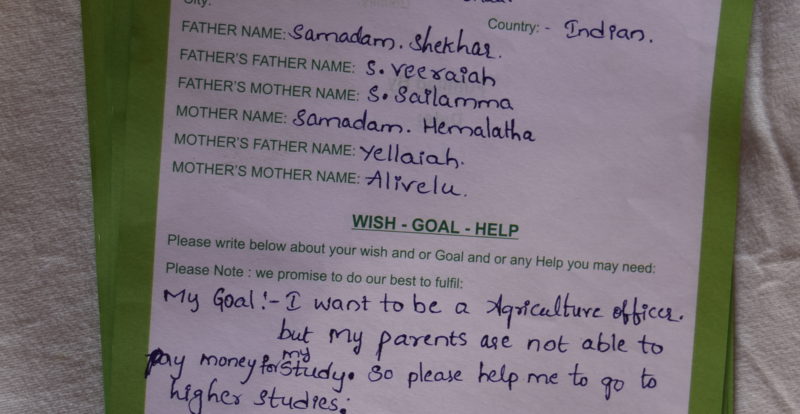 City:
Country: - Indian.
FATHER NAME: Samadam. Shekhar.
FATHER'S FATHER NAME: S. Veeraiah
FATHER'S MOTHER NAME: S. Sailamma
MOTHER NAME: Samadam. Hemalatha
MOTHER'S FATHER NAME: Yellaiah.
MOTHER'S MOTHER NAME: Alivelu.
WISH - GOAL - HELP
Please write below about your wish and or Goal and or any Help you may need:
Please Note : we promise to do our best to fulfil:
My Goal:- I want to be a Agriculture officer.
but my parents are not able to
pay money for my study. So please help me to go to
higher studies.